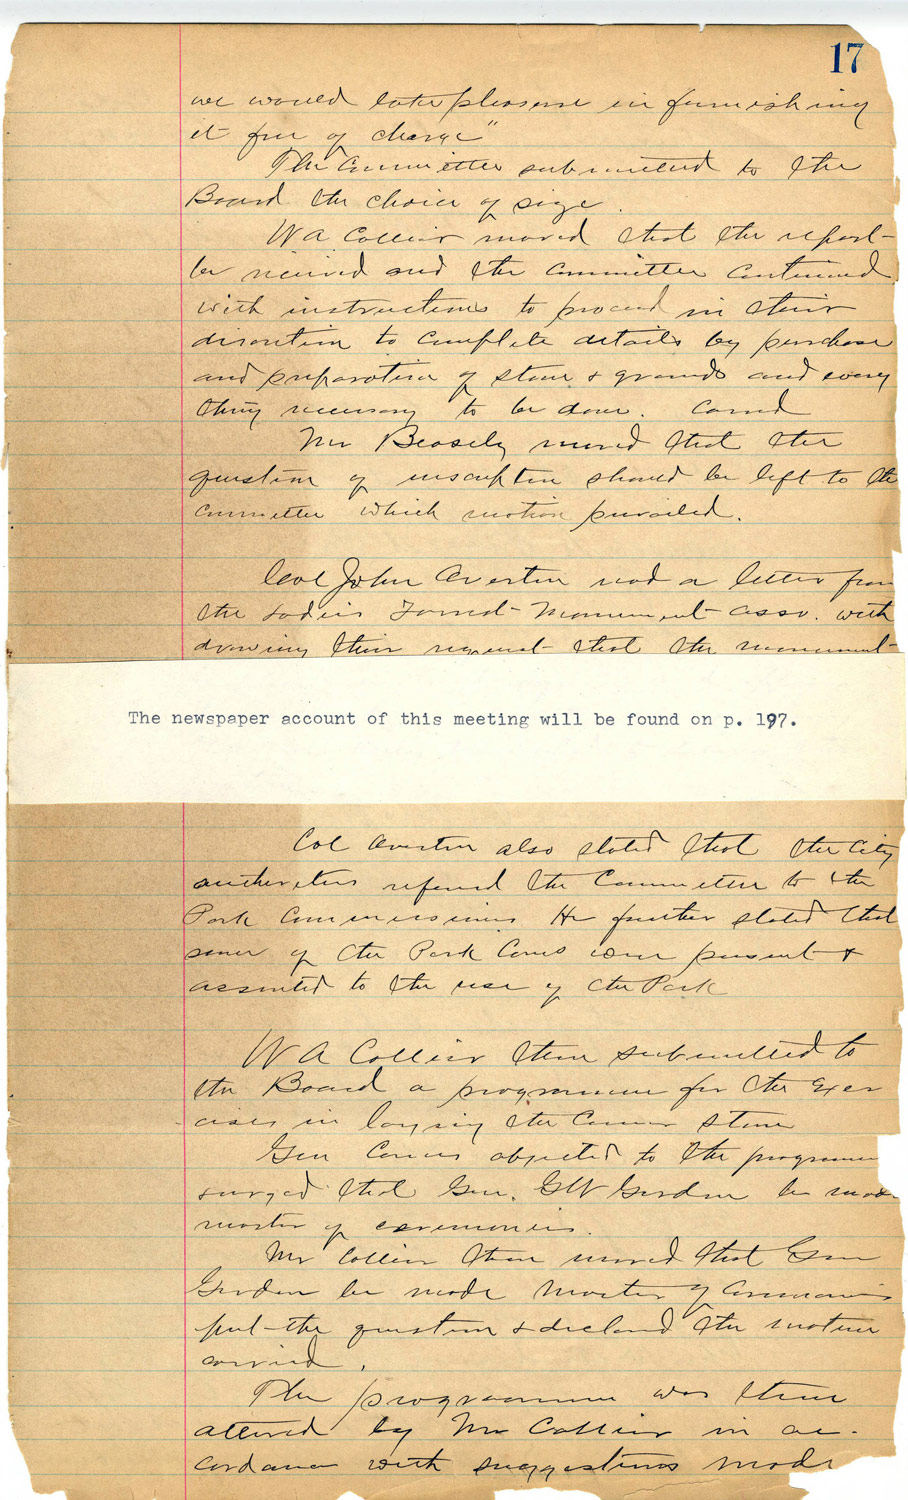 17
we would take pleasure in furnishing
it free of charge"
The Committee submitted to the
Board the choice of size.
W A Collier moved that the report
be received and the Committee continued
with instructions to proceed in their
discretion to complete details by purchase
and preparation of stone & grounds and every
thing necessary to be done. Carried
Mr Beasely moved that the
question of inscription should be left to the
Committee which motion prevailed.
Col John Overton read a letter from
the Ladies Forrest Monument Asso. with
drawing their request that the monument
The newspaper account of this meeting will be found on p. 197.
Col Overton also stated that the City
authorities referred the Committee to the
Park Commissioners He further stated that
some of the Park Coms were present &
assented to the use of the Park
W A Collier then submitted to
the Board a programme for the Exer
cises in laying the Corner Stone
Gen objected to the programme
& urged that Gen. G W Gordon be made
master of ceremonies.
Mr Collier then moved that Gen
Gordon be made Master of Ceremonies
put the question & declared the motion
carried.
The programme was then
altered by Mr Collier in ac-
cordance with suggestions made